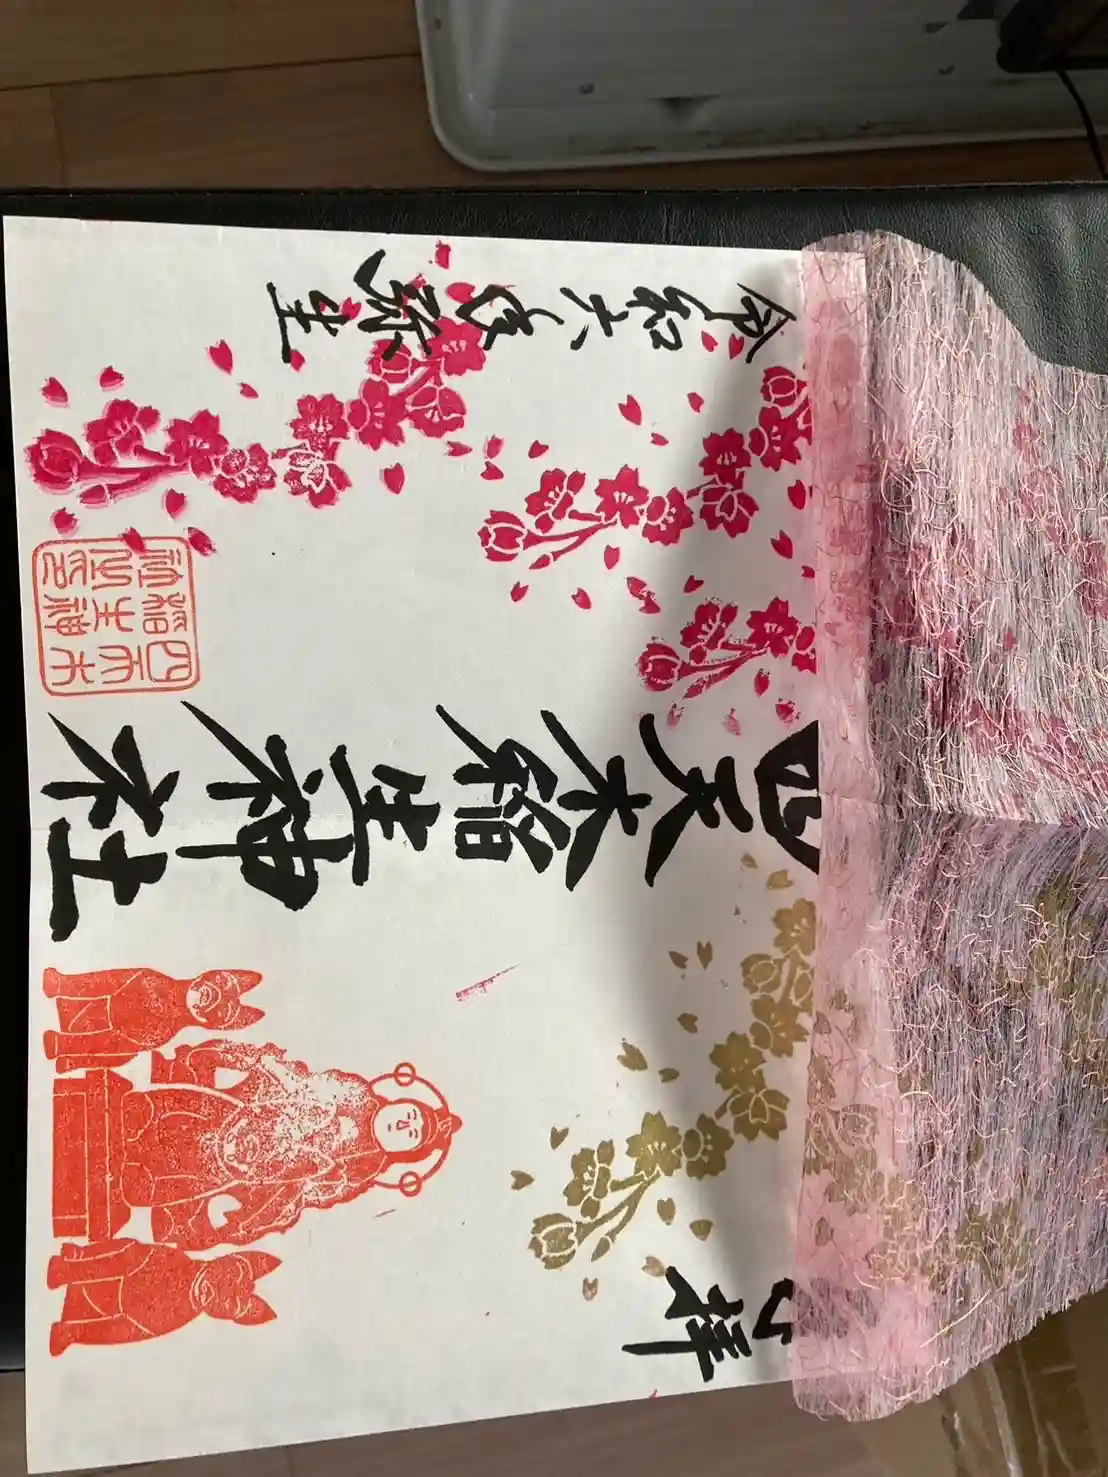 拝
四天木稲生神社
四天木
稲生神
社之印
令和六年弥生